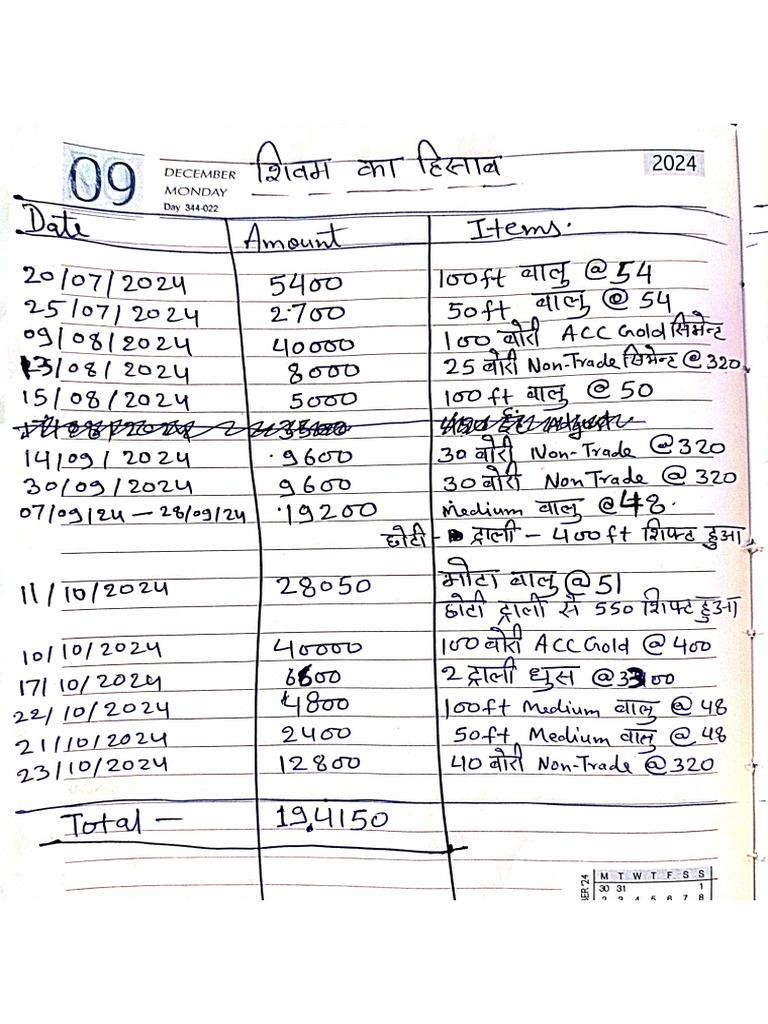 09 DECEMBER MONDAY Day 344-022 शिवम का हिसाब 2024
Date Amount Items.
20/07/2024 5400 100ft बालु @ 54
25/07/2024 2700 50ft बालु @ 54
09/08/2024 40000 100 बोरी ACC Gold सिमेन्ट
13/08/2024 8000 25 बोरी Non-Trade सिमेन्ट @ 320
15/08/2024 5000 100ft बालु @ 50
14/09/2024 9600 30 बोरी Non-Trade @ 320
30/09/2024 9600 30 बोरी Non Trade @ 320
07/09/24 — 28/09/24 19200 Medium बालु @ 48.
छोटी - ट्राली - 400ft शिफ्ट हुआ
11/10/2024 28050 मोटा बालु @ 51
छोटी ट्राली से 550 शिफ्ट हुआ
10/10/2024 40000 100 बोरी ACC Gold @ 400
17/10/2024 6600 2 ट्राली धुस @ 3300
22/10/2024 4800 100ft Medium बालु @ 48
21/10/2024 2400 50ft Medium बालु @ 48
23/10/2024 12800 40 बोरी Non-Trade @ 320
Total — 19,4150
M T W T F S S
30 31 1
2 3 4 5 6 7 8